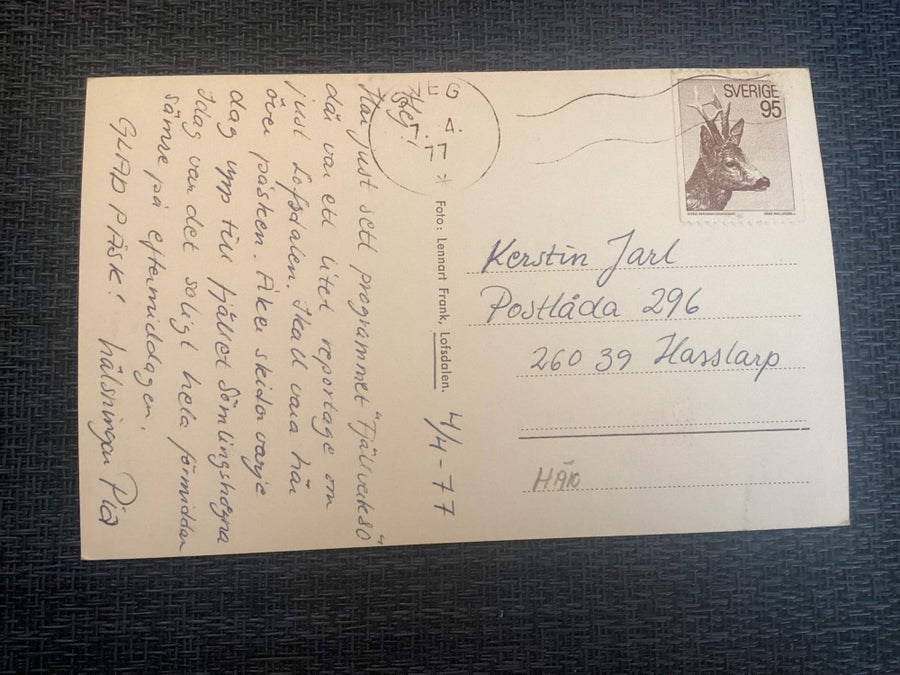 Hej!
Har just sett programmet "Fjällvak 80"
där var ett litet reportage om
just Lofsdalen. Skall vara här
över påsken. Åker skidor varje
dag upp till fjället Sömlingshågna
Idag var det soligt hela förmiddan
sämre på eftermiddagen.
GLAD PÅSK! hälsningar Pia
4/4-77
Foto: Lennart Frank, Lofsdalen.
EG
4.
77
SVERIGE
95
Kerstin Jarl
Postlåda 296
260 39 Hasslarp
HÄR